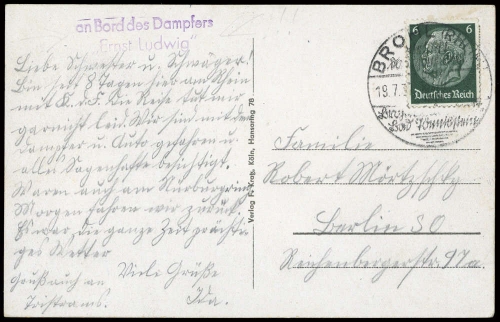 an Bord des Dampfers
„Ernst Ludwig"
Liebe Schwester u. Schwager!
Bin seit 8 Tagen hier am Rhein
mit K.d.F. Die Reise tut mir
garnicht leid. Wir sind mit dem
Dampfer u. Auto gefahren u.
alles Sagenhafte besichtigt.
Waren auch am Nürburgring
Morgen fahren wir zurück.
Es war die ganze Zeit prächti-
ges Wetter
Gruß auch an
Tristrams.
Viele Grüße
Ida.
Verlag F. Kratz, Köln, Hansaring 76
BRO
19.7.3
Bad Tönisstein
6 6
Deutsches Reich
Familie
Robert Mörtzschky
Berlin SO
Reichenbergerstr. 97a.